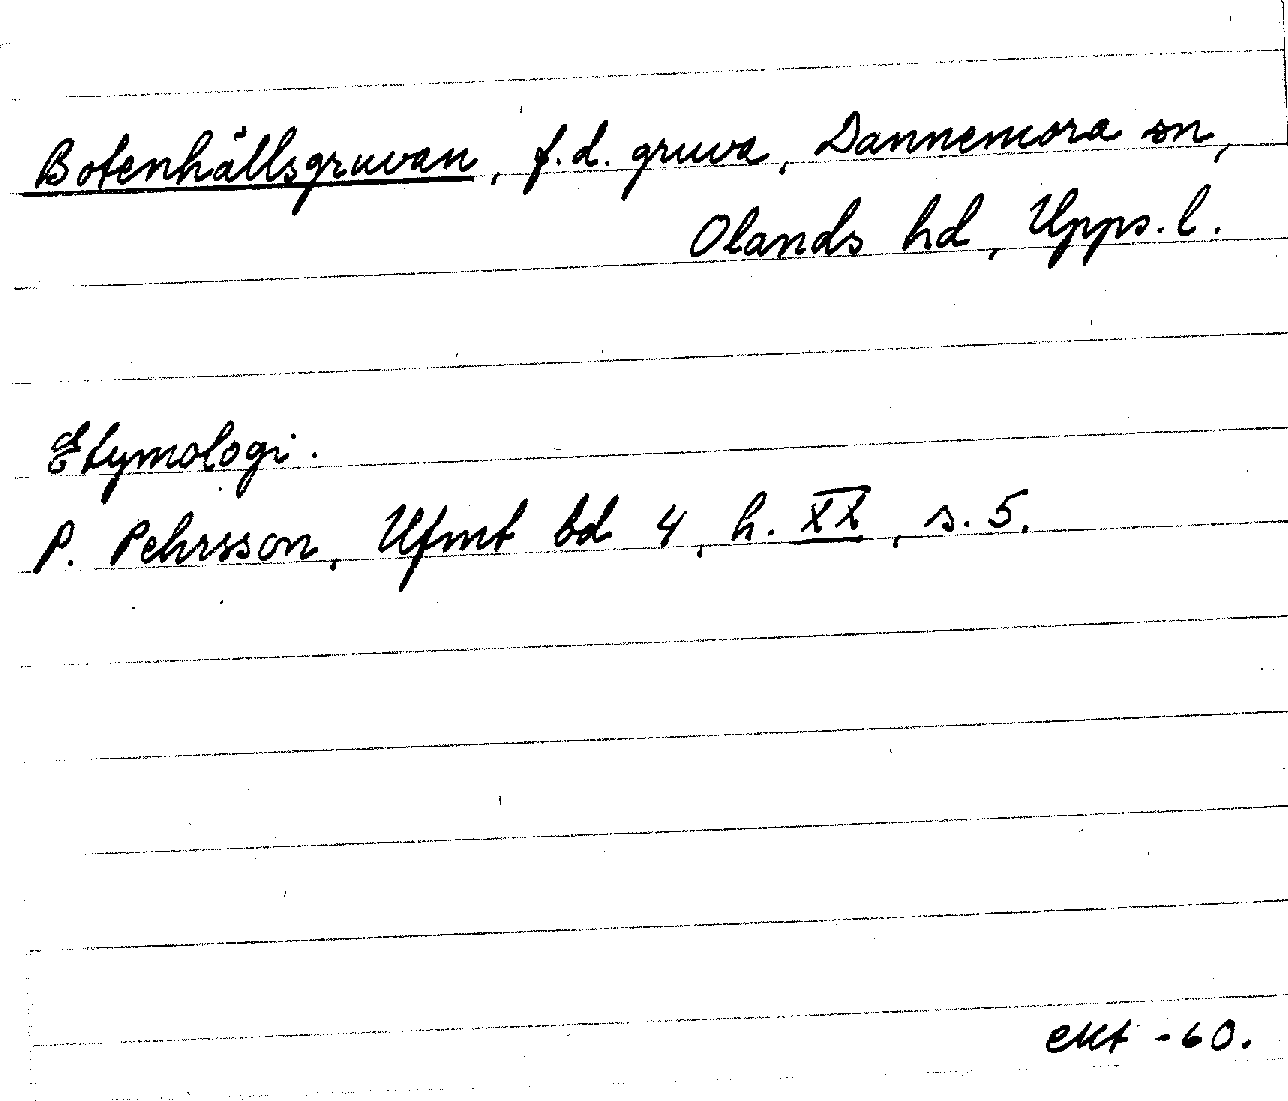 Botenhällsgruvan, f.d. gruva, Dannemora sn,
Olands hd, Upps. l.
Etymologi.
P. Pehrsson, Ufmt bd 4, h. XX, s. 5.
-60.